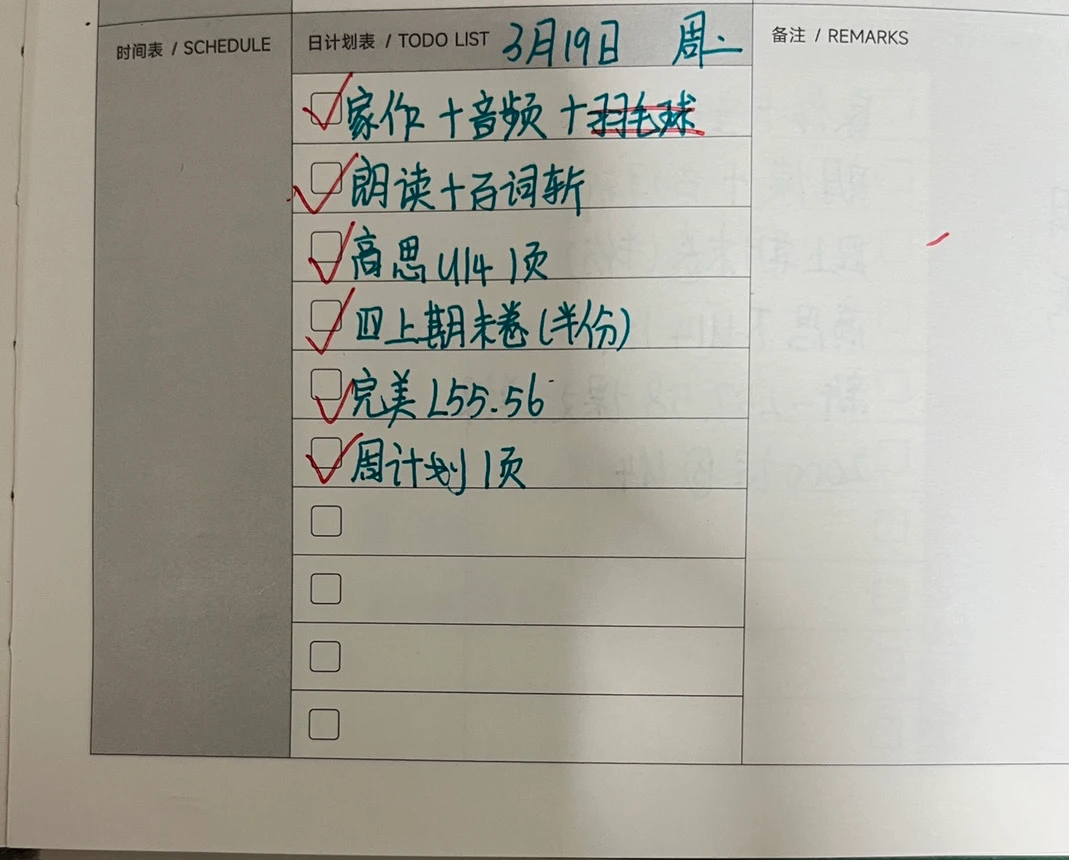 时间表 / SCHEDULE
日计划表 / TODO LIST 3月19日 周二
备注 / REMARKS
家作+音频+羽毛球
朗读+百词斩
高思U14 1页
四上期末卷(半份)
完美L55.56
周计划1页